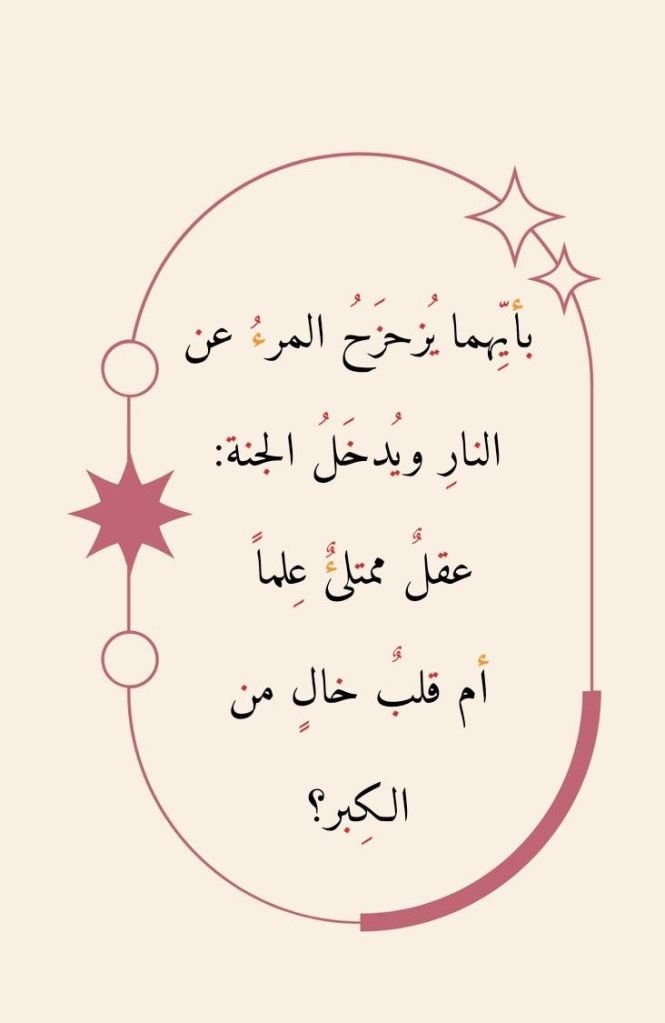 بأيِّهما يُزحزَحُ المرءُ عن
النارِ ويُدخَلُ الجنة:
عقلٌ ممتلئٌ عِلماً
أم قلبٌ خالٍ من
الكِبر؟